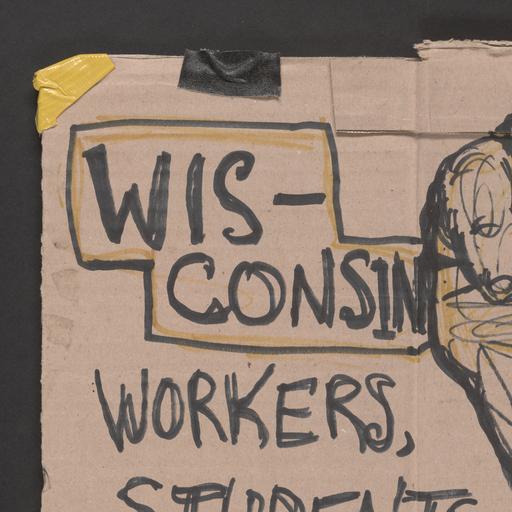 WIS-
CONSIN
WORKERS,
STUDENTS